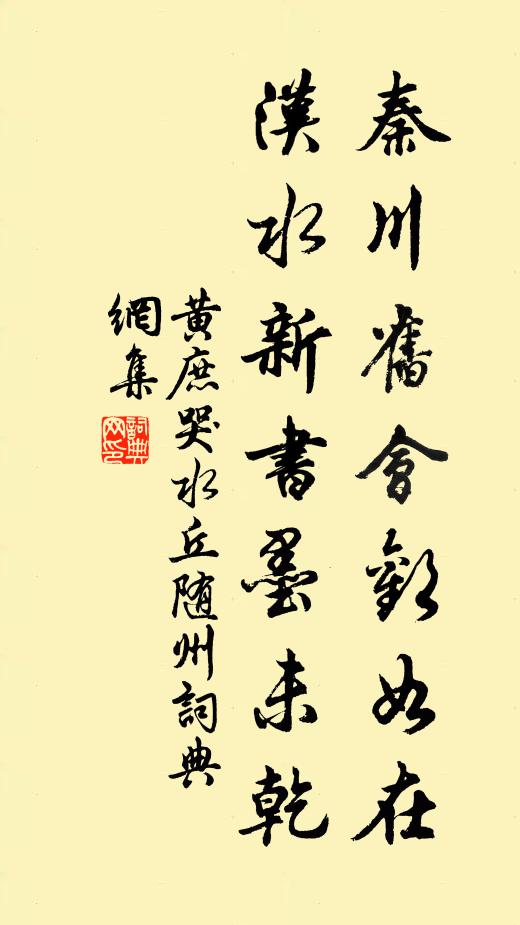 秦川舊會歡如在
漢水新書墨未乾
黃庶哭水丘随州詞典
網集
詞典
网印